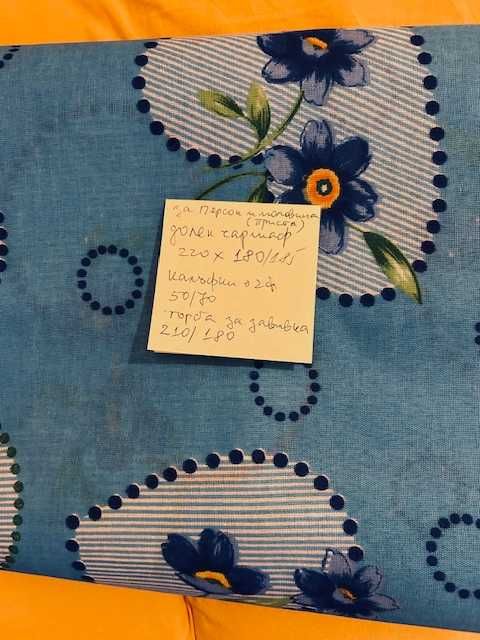 за персон и половина
(приста)
долен чаршаф
220 x 180/185
калъфки 2бр
50/70
торба за завивка
210/180